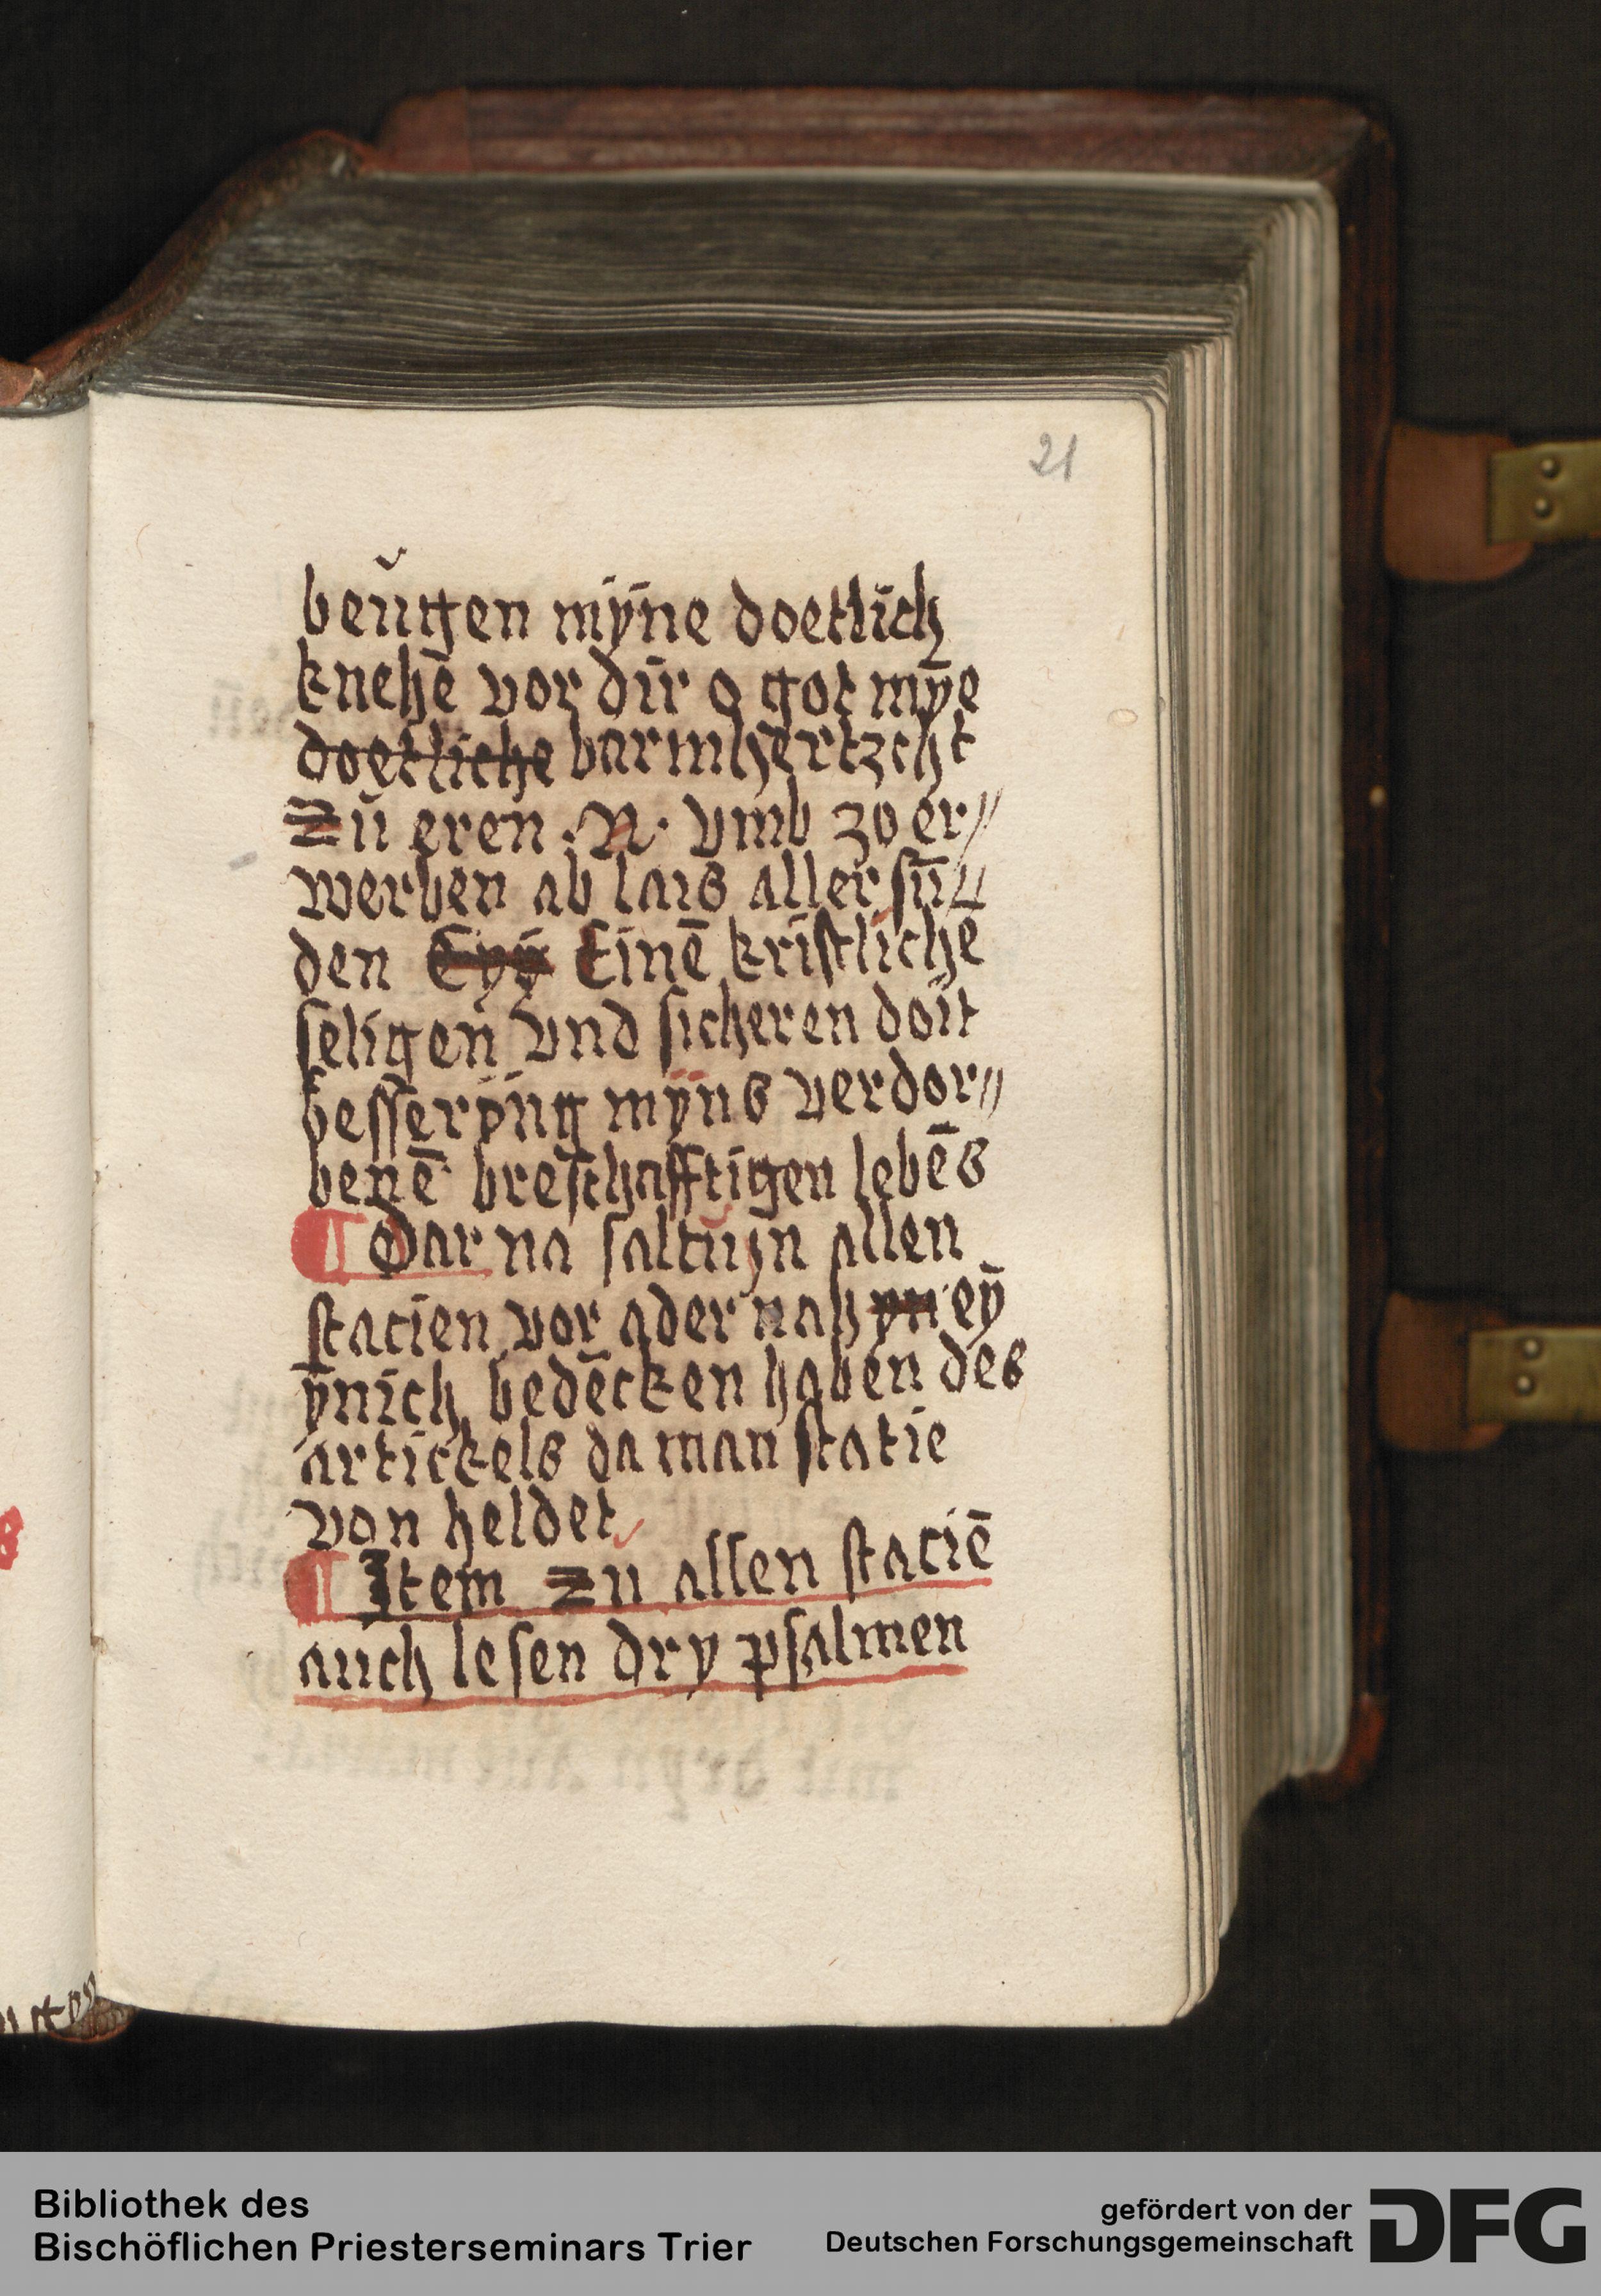 21
beŭgen myne doetlich
knehē vor dir o got mȳe
doetliche barmhertzcht
Zŭ eren .N. vmb zo er//
werben ab lais aller sūn
den Eyÿ Einē kristliche
seligen vnd sicheren doit
besserÿng mÿns verdor//
benē breschafftigen lebēs
¶ Dar na saltŭ yn allen
stacien vor ader nah yn eȳ
ynich bedēcken haben des
artickels da man statie
von heldet
¶ Item Zu allen staciē
auch lesen dry psalmen
Bibliothek des
Bischöflichen Priesterseminars Trier
gefördert von der
Deutschen Forschungsgemeinschaft
DFG